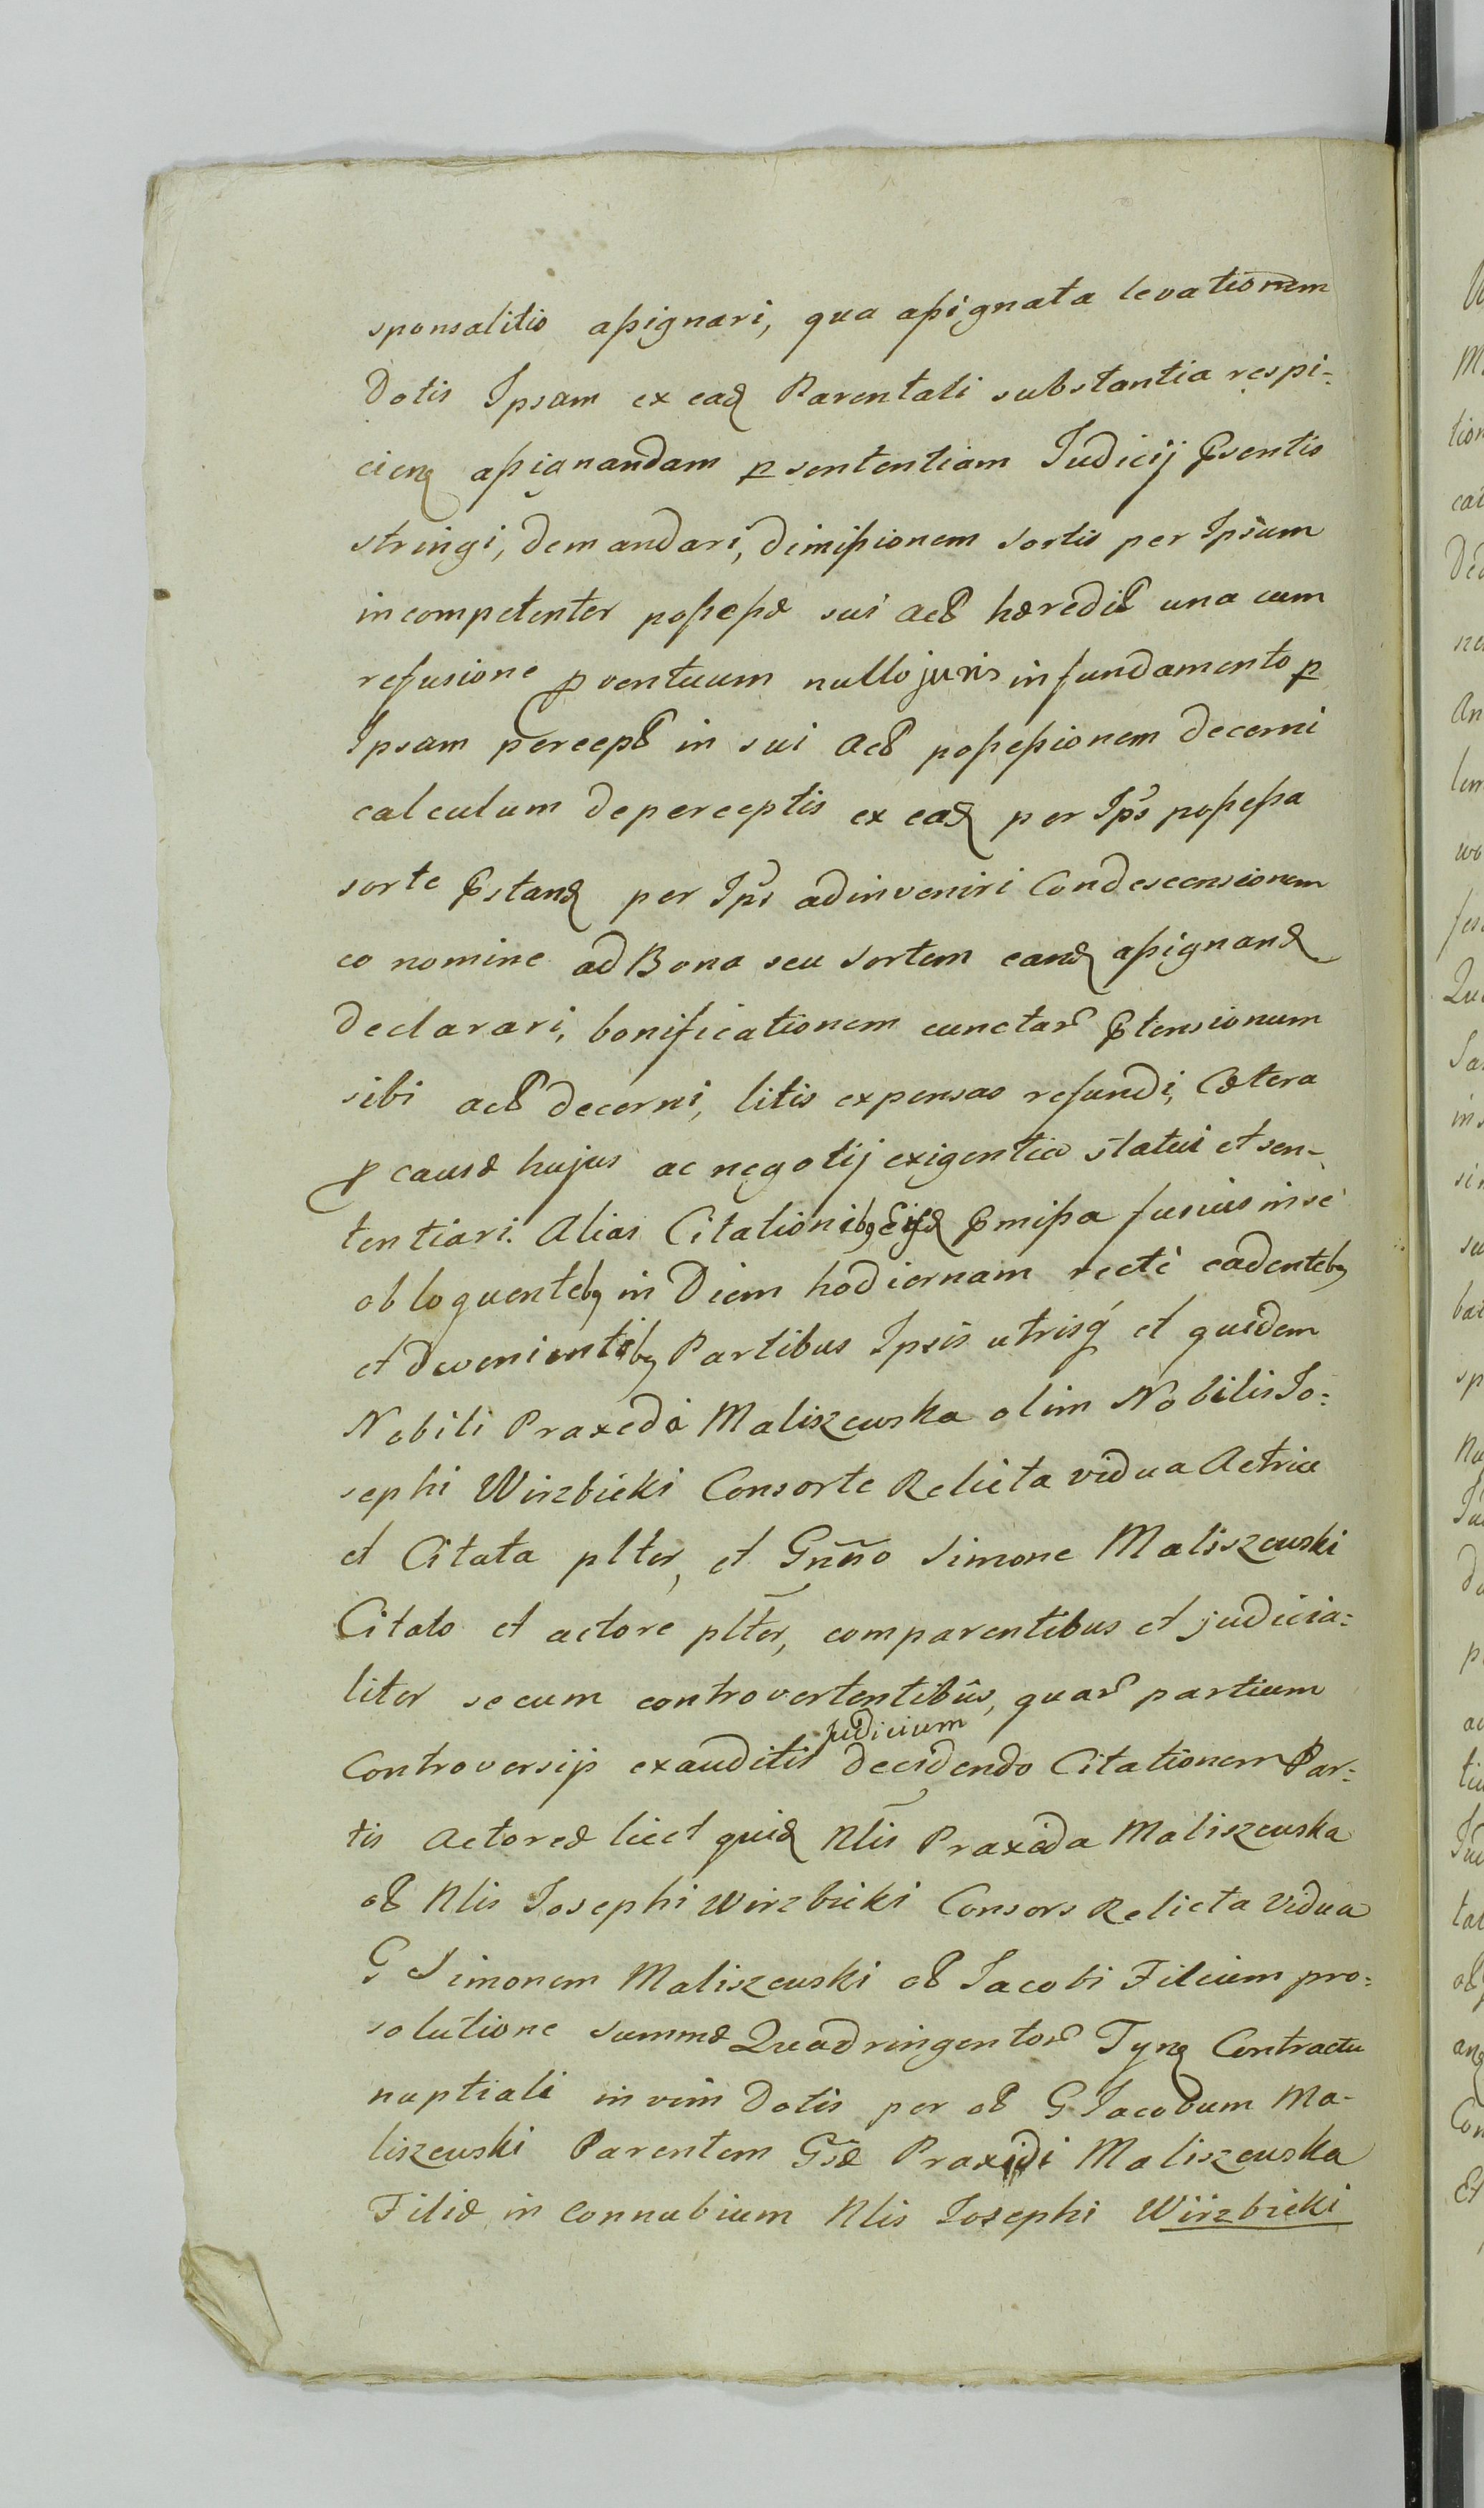 sponsalitio assignari, qua assignata levationem
Dotis Ipsam ex ead Parentali substantia respi-
cieng assignandam p sententiam Judicij Psentis
stringi, demandari, dimissionem Sortis per Ipsum
incompetenter possessæ sui act hæredit una cum
refusione pventuum nullo juris in fundamento p
Ipsam percept in sui act possessionem decerni
calculum de perceptis ex ead per Ips possessa
sorte Pstand per Ips adinveniri Condescensionem
eo nomine ad Bona seu Sortem eand assignand
declarari, bonificationem cunctar Ptensionum
sibi act decerni, litis expensas refundi, Cætera
p causæ hujus ac negotij exigentia statui et sen-
tentiari. Alias Citationibq Eijsd Pmissa fusius in se
obloquentibq in Diem hodiernam recté cadentibq
et devenientibq Partibus Ipsis utrisq et quidem
Nobili Praxeda Maliszewska olim Nobilis Jo-
sephi Wirzbicki Consorte Relicta vidua Actrice
et Citata plter, et Gnnso Simone Maliszewski
Citato et actore plter, comparentibus et judicia-
liter secum controvertentibus, quar partium
Controversijs exauditis Judicium decidendo Citationem Par-
tis Actoreæ licet quid Nlis Praxeda Maliszewska
ol Nlis Josephi Wirzbicki Consors Relicta Vidua
G Simonem Maliszewski ol Jacobi Filium pro-
solutione summæ Quadringentor Tynq Contractu
nuptiali in vim Dotis per ol G Jacobum Ma-
liszewski Parentem Gsæ Praxidi Maliszewska
Filiæ in Connubium Nlis Josephi Wirzbicki